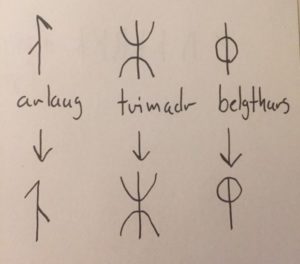 ᛮ ᛯ ᛰ
arlaug tvimadr belgthurs
ᛮ ᛯ ᛰ